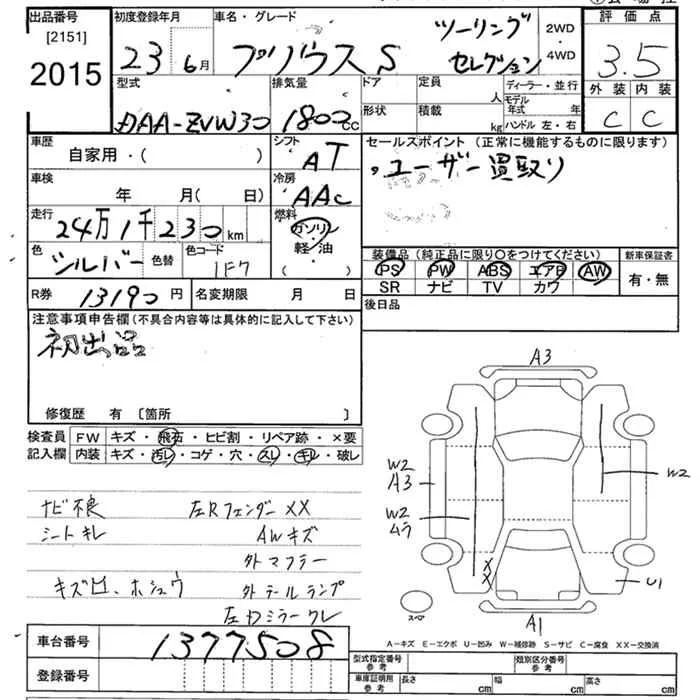 出品番号 初度登録年月 車名・グレード 評価点
[2151]
2015
23 6月 プリウス S ツーリング セレクション 2WD ・ 4WD
3.5
外装 内装
C C
型式 排気量 ドア 定員 ディーラー・並行
DAA-ZVW30 1800 CC 人 モデル年式 年
形状 積載 kg ハンドル 左・右
車歴 シフト セールスポイント (正常に機能するものに限ります)
自家用・( ) AT ユーザー買取り
車検 冷房
年 月( 日) AAC
走行 燃料
24万1千230 km ガソリン
軽・油
( )
色 シルバー 色替 色コード 1F7
装備品 (純正品に限り○をつけてください) 新車保証書
PS PW ABS エアB AW 有・無
SR ナビ TV カワ
R券 13190円 名変期限 月 日 後日品
注意事項申告欄 (不具合内容等は具体的に記入して下さい)
初出品
修復歴 有 [箇所 ]
検査員 FW キズ・飛石・ヒビ割・リペア跡・×要
記入欄 内装 キズ・汚レ・コゲ・穴・スレ・キレ・破レ
ナビ不良 左Rフェンダー XX
シートキレ AWキズ
外マフラー
キズ凹、ホシュウ 外テールランプ
左ドミラークレ
A3
W2
A3
W2
ムラ
W2
X
X
U1
A1
スペア
A-キズ E-エクボ U-凹み W-補修跡 S-サビ C-腐食 XX-交換済
車台番号 1377508
登録番号
型式指定番号 参考 類別区分番号 参考
車庫証明用 参考 長さ cm 幅 cm 高さ cm